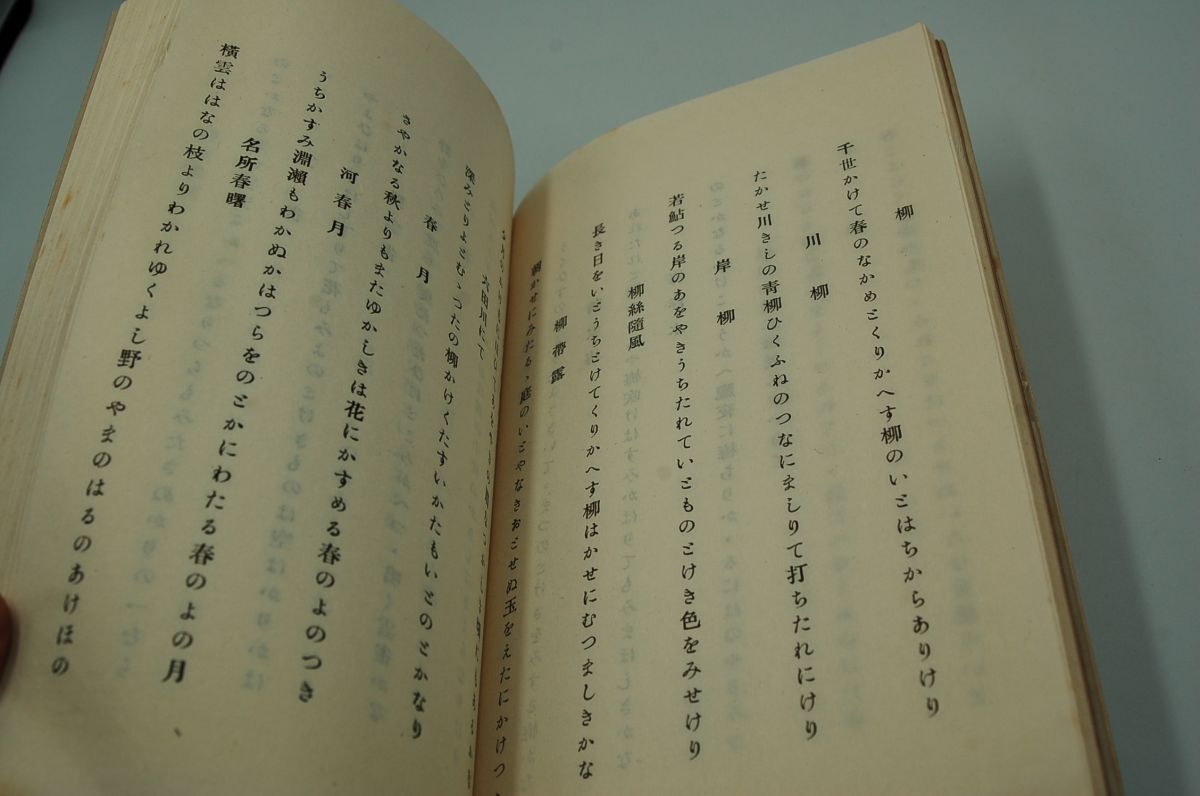 柳
千世かけて春のなかめとくりかへす柳のいとはちからありけり
川柳
たかせ川きしの青柳ひくふねのつなにましりて打ちたれにけり
岸柳
若鮎つる岸のあをやきうちたれていとものとけき色をみせけり
柳絲隨風
長き日をいとうちとけてくりかへす柳はかせにむつましきかな
柳帶露
朝かせにみたるゝ庭のいとやなきおとせぬ玉をえたにかけつ
田川にて
深みとりよとむゝつたの柳かけくたすいかたもいとのとかなり
春月
さやかなる秋よりもまたゆかしきは花にかすめる春のよのつき
河春月
うちかすみ淵瀬もわかぬかはつらをのとかにわたる春のよの月
名所春曙
橫雲ははなの枝よりわかれゆくよし野のやまのはるのあけほの